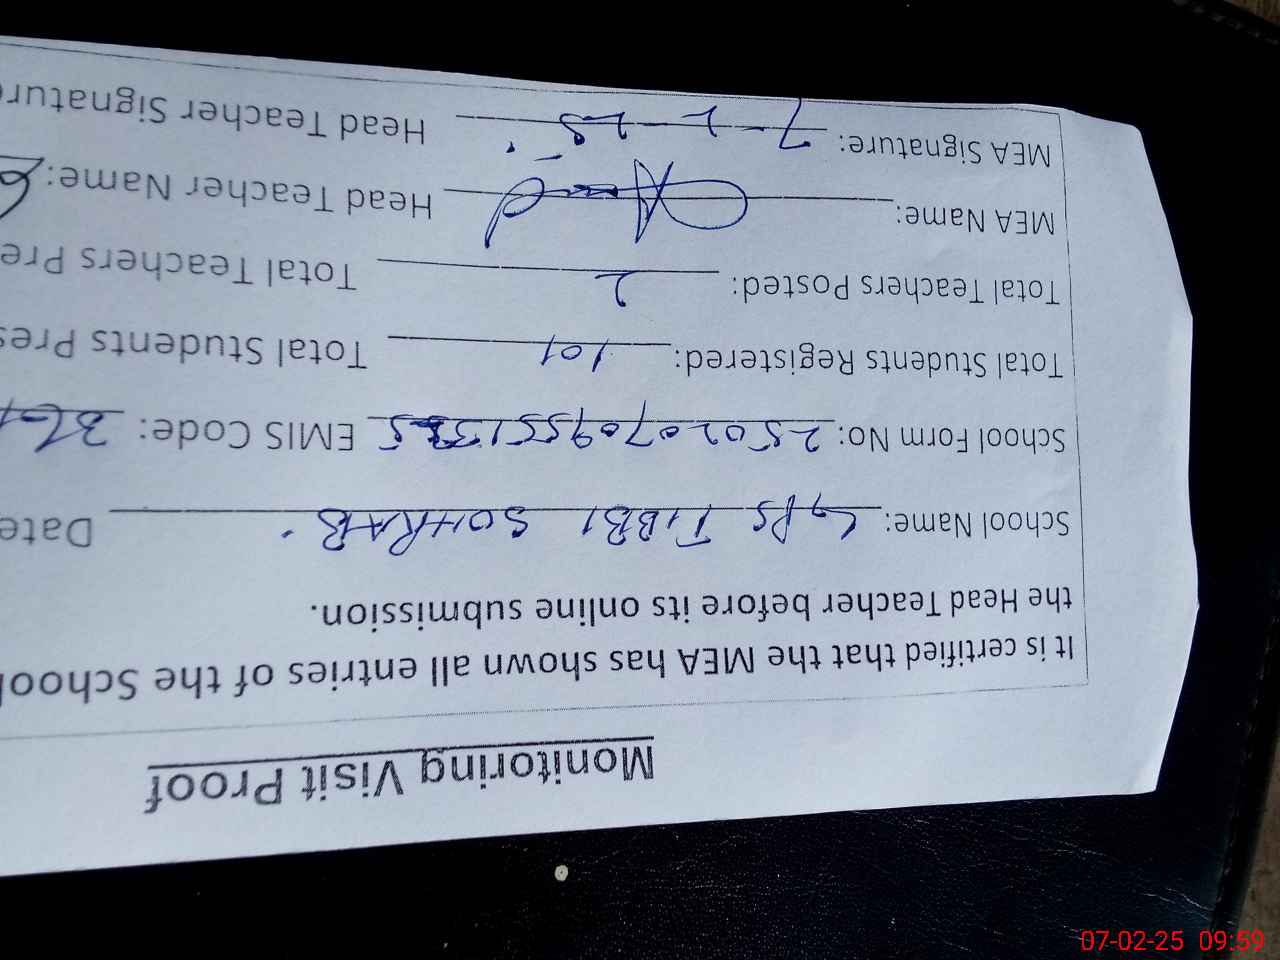 Monitoring Visit Proof
It is certified that the MEA has shown all entries of the School
the Head Teacher before its online submission.
School Name: GPS TIBBI SOHRAB Date
School Form No: EMIS Code:
Total Students Registered: 101 Total Students Pres
Total Teachers Posted: 2 Total Teachers Pre
MEA Name: Head Teacher Name:
MEA Signature: 7-2-25 Head Teacher Signature
07-02-25 09:59